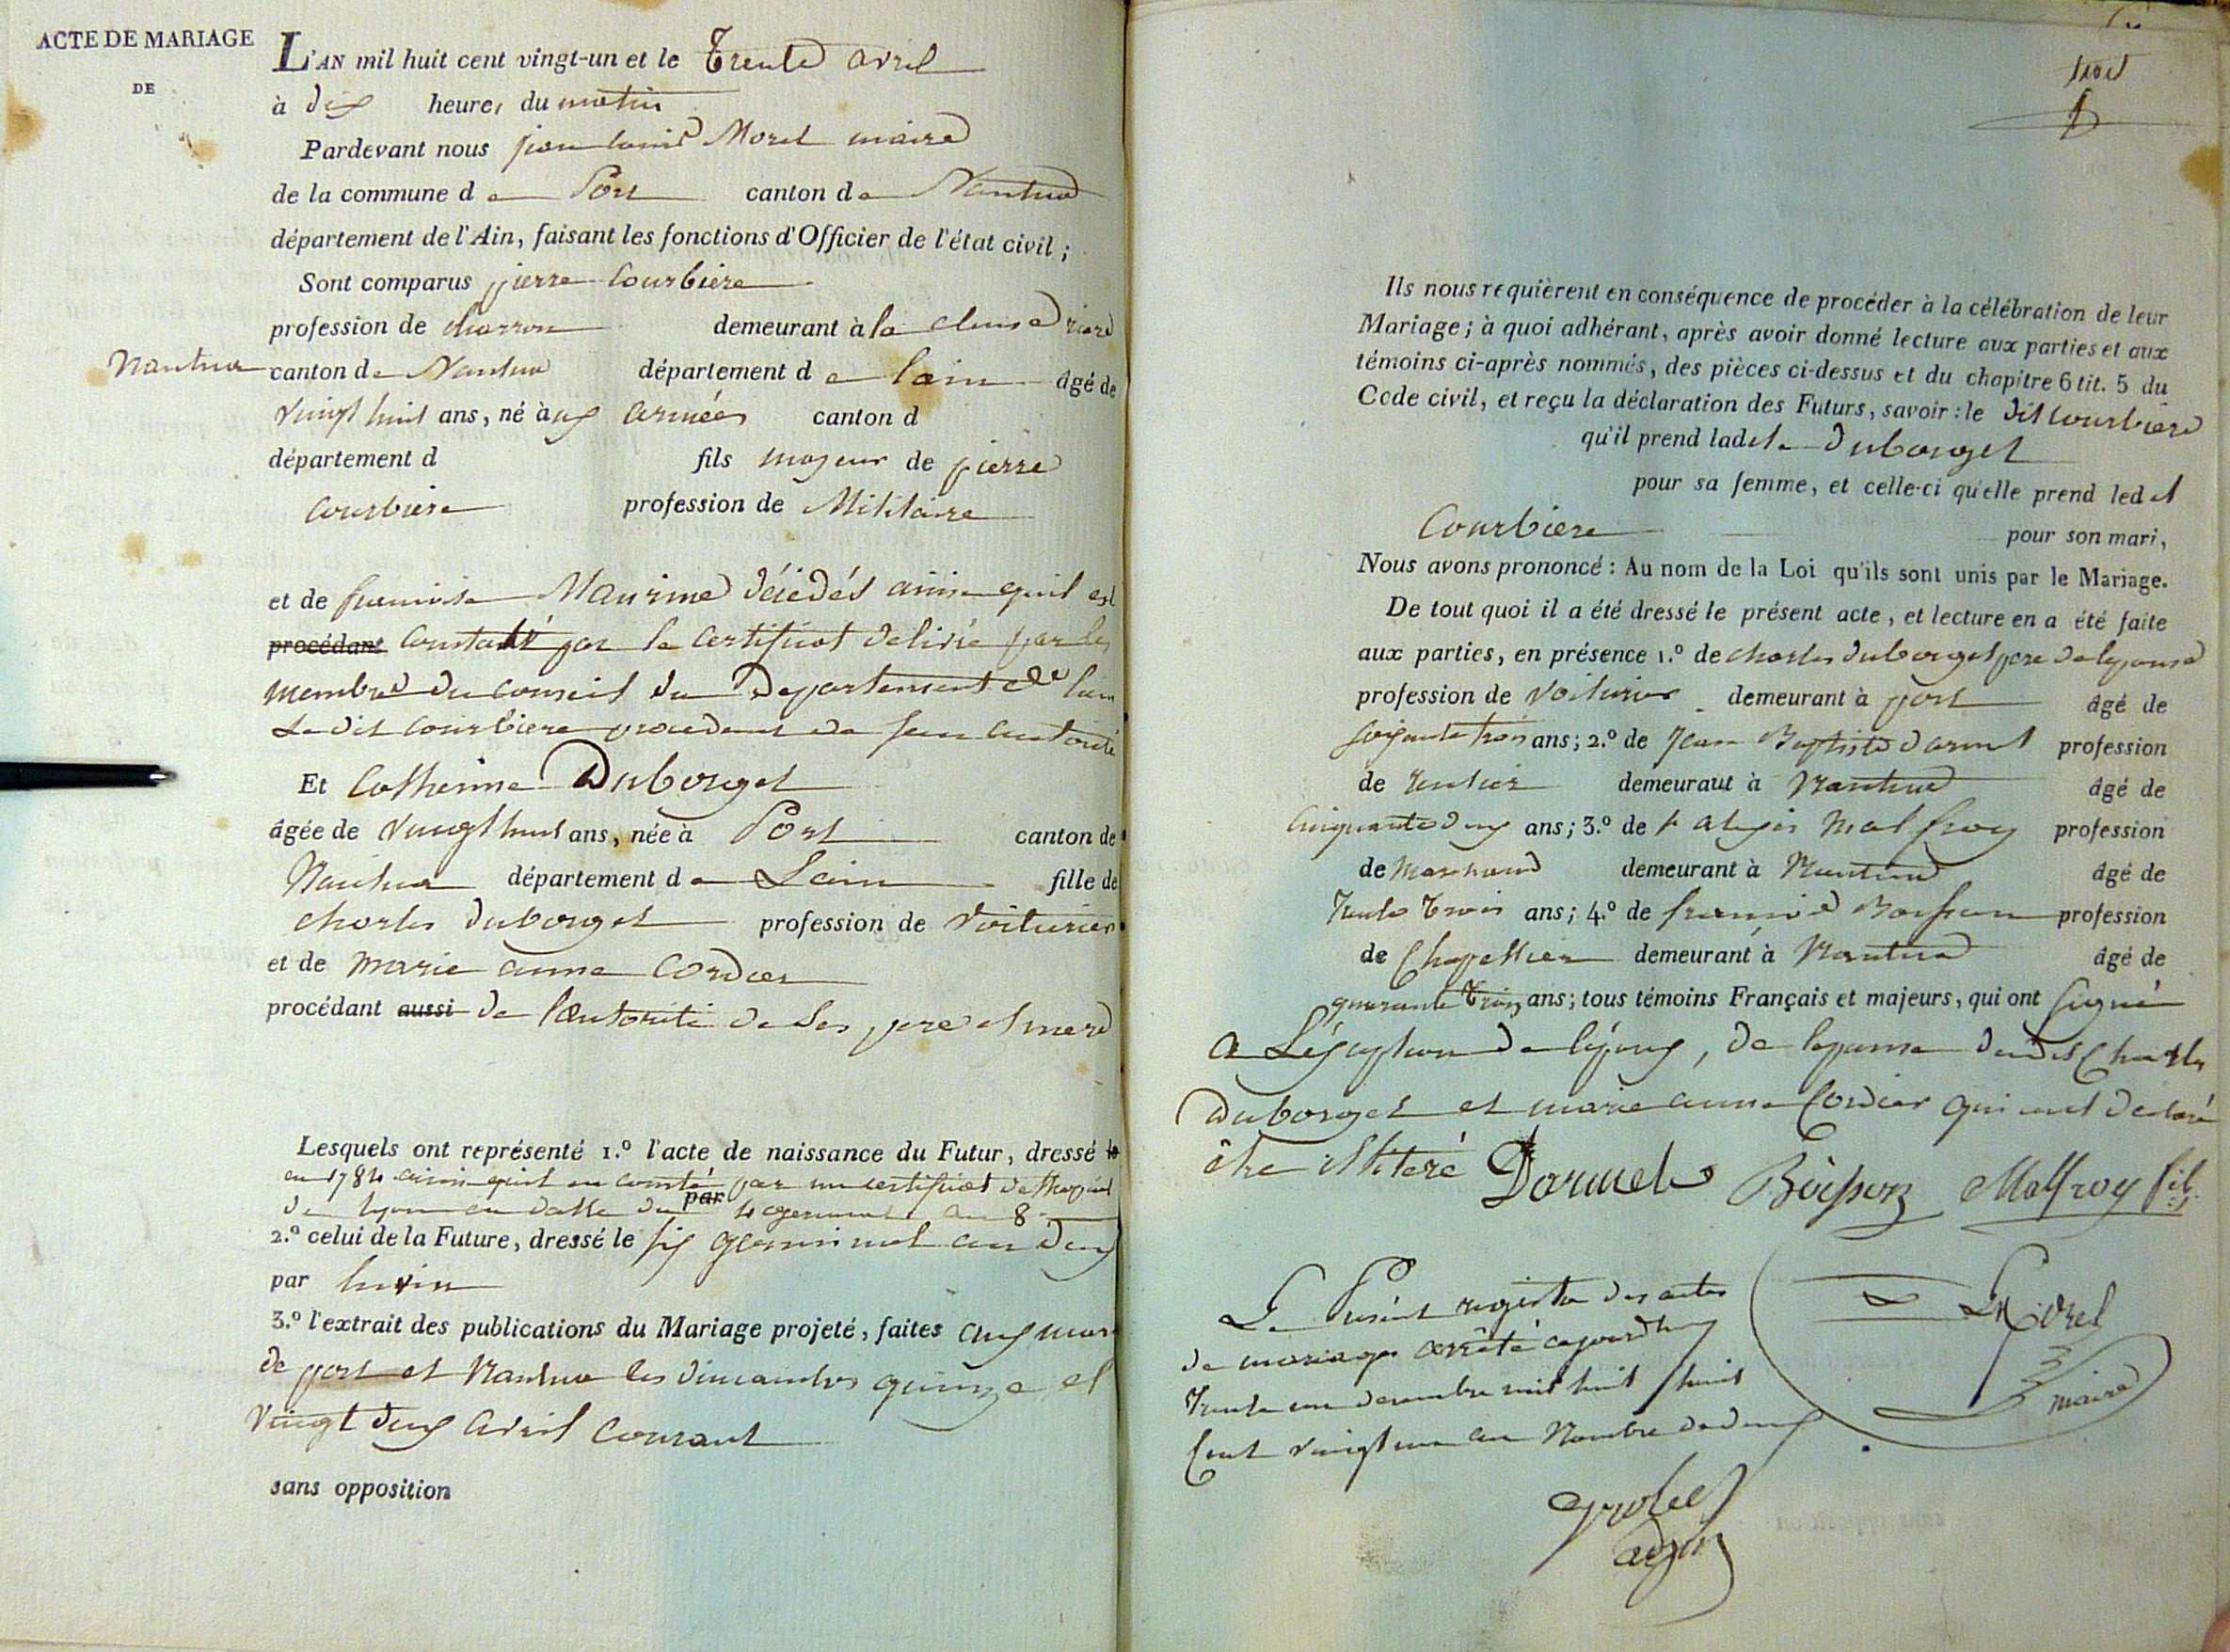 ACTE DE MARIAGE
DE
L'AN mil huit cent vingt-un et le Trente avril
à dix heures du matin
Pardevant nous jean louis Morel maire
de la commune de Port canton de Nantua
département de l'Ain, faisant les fonctions d'Officier de l'état civil;
Sont comparus pierre Courbiere
profession de charron demeurant à la cluse
Nantua
canton de Nantua département de lain âgé de
vingt huit ans, né aux armées canton d
département d fils majeur de pierre
Courbiere profession de Militaire
et de francoise Maurine décédés ainsi quil est
procédant constaté par le certificat delivré par les
membres du conseil du Departement de lain
Le dit courbiere procedant de son autorité
Et Catherine Duborget
âgée de vingt huit ans, née à Port canton de
Nantua département de Lain fille de
charles duborget profession de voiturier
et de marie anne Cordier
procédant aussi de lautorité de ses pere et mere
Lesquels ont représenté 1.º l'acte de naissance du Futur, dressé le
en 1784 ainsi quil en conste par un certificat de
de lyon en datte du par 4 germinal an 8
2.º celui de la Future, dressé le six germinal an deux
par
3.º l'extrait des publications du Mariage projeté, faites aux
de port et Nantua les dimanches quinze et
vingt deux avril courant
sans opposition
trois
Ils nous requièrent en conséquence de procéder à la célébration de leur
Mariage; à quoi adhérant, après avoir donné lecture aux parties et aux
témoins ci-après nommés, des pièces ci-dessus et du chapitre 6 tit. 5 du
Code civil, et reçu la déclaration des Futurs, savoir: le dit courbiere
qu'il prend ladite Duborget
pour sa femme, et celle-ci qu'elle prend ledit
Courbiere pour son mari,
Nous avons prononcé: Au nom de la Loi qu'ils sont unis par le Mariage.
De tout quoi il a été dressé le présent acte, et lecture en a été faite
aux parties, en présence 1.º de charles duborget pere de lepouse
profession de voiturier demeurant à port âgé de
soixante trois ans; 2.º de Jean Baptiste dormet profession
de rentier demeuraut à Nantua âgé de
cinquante deux ans; 3.º de alexis Malfroy profession
de Marchand demeurant à Nantua âgé de
Trente trois ans; 4.º de francois Boisson profession
de Chapellier demeurant à Nantua âgé de
quarante trois ans; tous témoins Français et majeurs, qui ont signé
a Léxception de lépoux, de lepouse dudit Charles
Duborget et marie anne Cordier qui ont declaré
être illiteré Dormet Boisson Malfroy fils
Le Présent registre des actes
de mariages arrêté cejourdhuy
Trente un decembre mil huit
Cent vingt un au Nombre de deux
Morel
maire
adjt